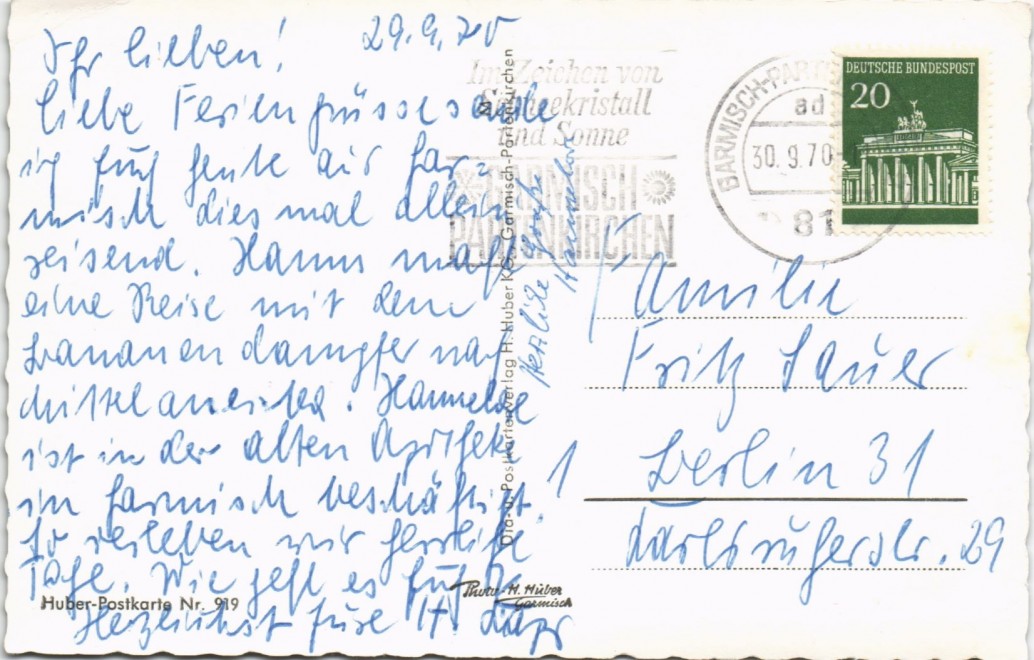 29.9.70
Ihr lieben!
liebe Feriengrüsse sende
ich Euch heute aus Gar-
misch diesmal allein
reisend. Hanns macht
eine Reise mit dem
Bananendampfer nach
Mittelamerika. Hannelore
ist in der alten Apotheke
in Garmisch beschäftigt.
So verleben wir herrliche
Tage. Wie geht es Euch?
Herzlichst Eure
Herzliche Grüße
Hannelore
Huber-Postkarte Nr. 919
Dia- u. Postkartenverlag H. Huber KG. Garmisch-Partenkirchen
Photo H. Huber
Garmisch
Im Zeichen von
Schneekristall
und Sonne
GARMISCH
PARTENKIRCHEN
GARMISCH-PARTE
ad
30.9.70
81
DEUTSCHE BUNDESPOST
20
Familie
Fritz Sauer
1 Berlin 31
Karlsruherstr. 29